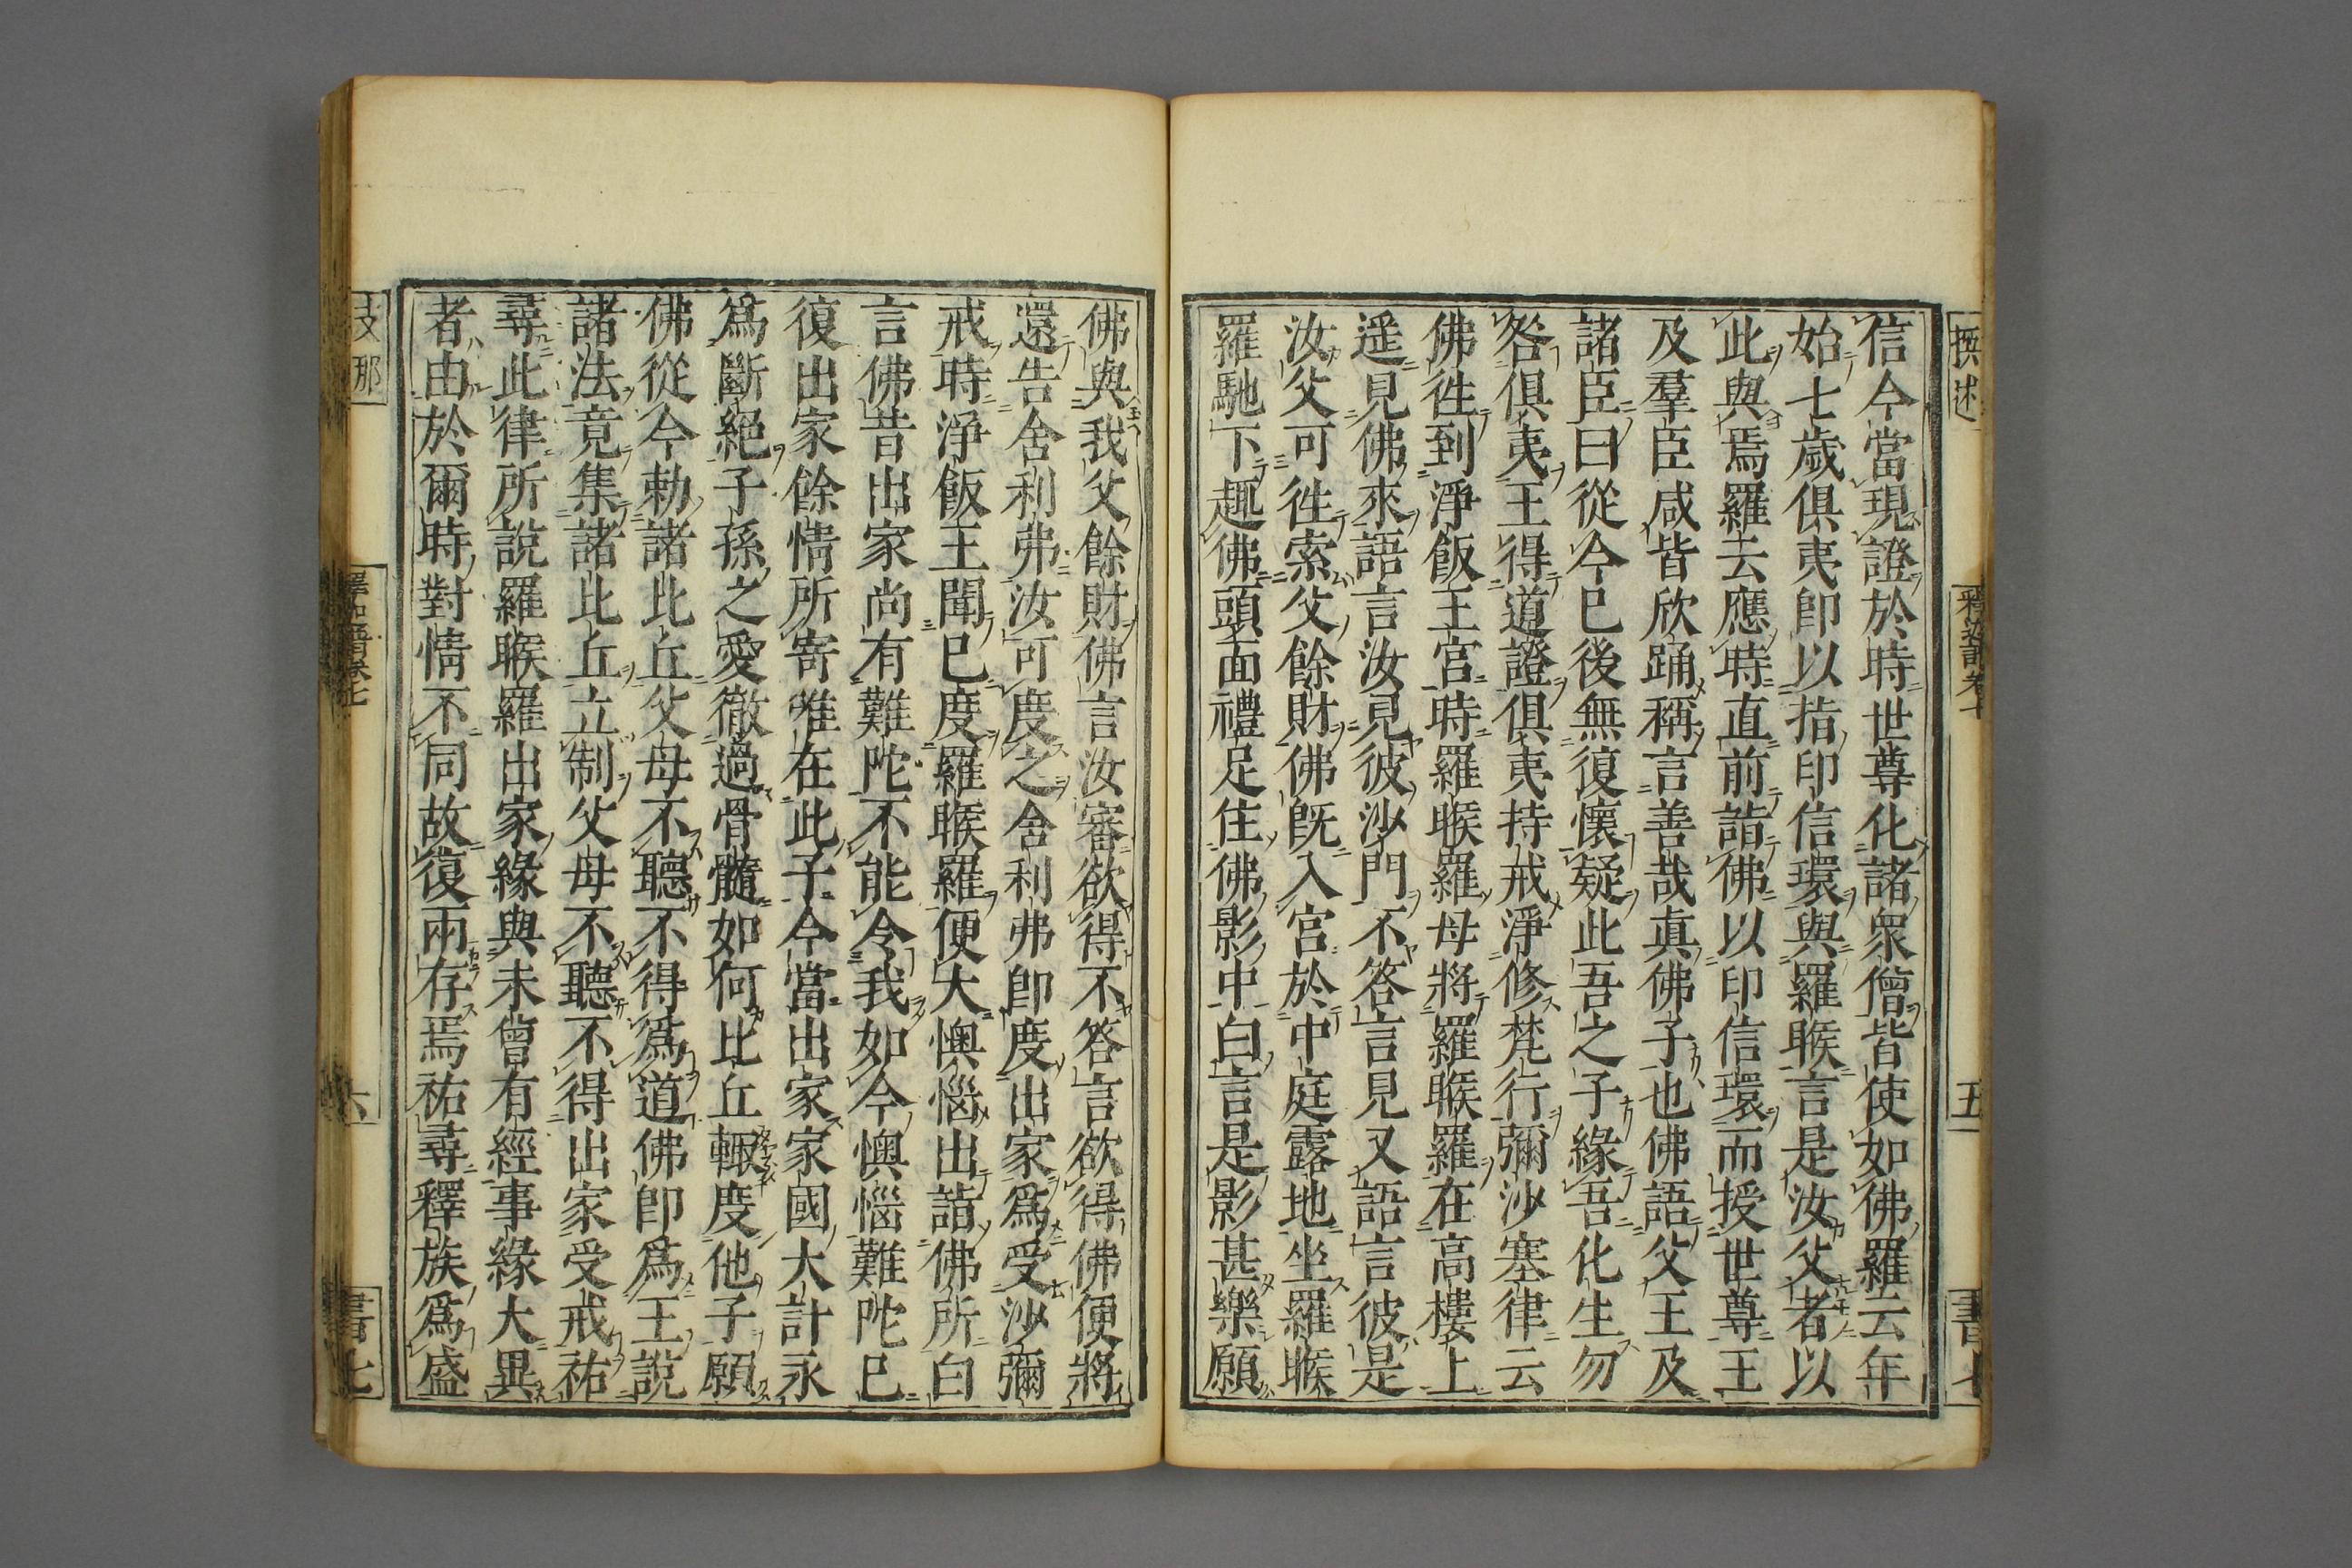 撰述
釋迦譜卷七
五
書七
信今當現證於時世尊化諸衆僧皆使如佛羅云年
始七歲俱夷卽以指印信環與羅睺言是汝父者以
此與焉羅云應時直前詣佛以印信環而授世尊王
及羣臣咸皆欣踊稱言善哉眞佛子也佛語父王及
諸臣曰從今已後無復懷疑此吾之子緣吾化生勿
咎俱夷王得道證俱夷持戒淨修梵行彌沙塞律云
佛徃到淨飯王宮時羅睺羅母將羅睺羅在高樓上
遥見佛來語言汝見彼沙門不答言見又語言彼是
汝父可徃索父餘財佛旣入宮於中庭露地坐羅睺
羅馳下趣佛頭面禮足住佛影中白言是影甚樂願
佛與我父餘財佛言汝審欲得不答言欲得佛便將
還告舍利弗汝可度之舍利弗卽度出家爲受沙彌
戒時淨飯王聞已度羅睺羅便大懊惱出詣佛所白
言佛昔出家尚有難陀不能令我如今懊惱難陀已
復出家餘情所寄唯在此子今當出家家國大計永
爲斷絕子孫之愛徹過骨髓如何比丘輙度他子願
佛從今勅諸比丘父母不聽不得爲道佛卽爲王說
諸法竟集諸比丘立制父母不聽不得出家受戒祐
尋此律所說羅睺羅出家緣與未曾有經事緣大異
者由於爾時對情不同故復兩存焉祐尋釋族爲盛
支那
釋迦譜卷七
六
書七